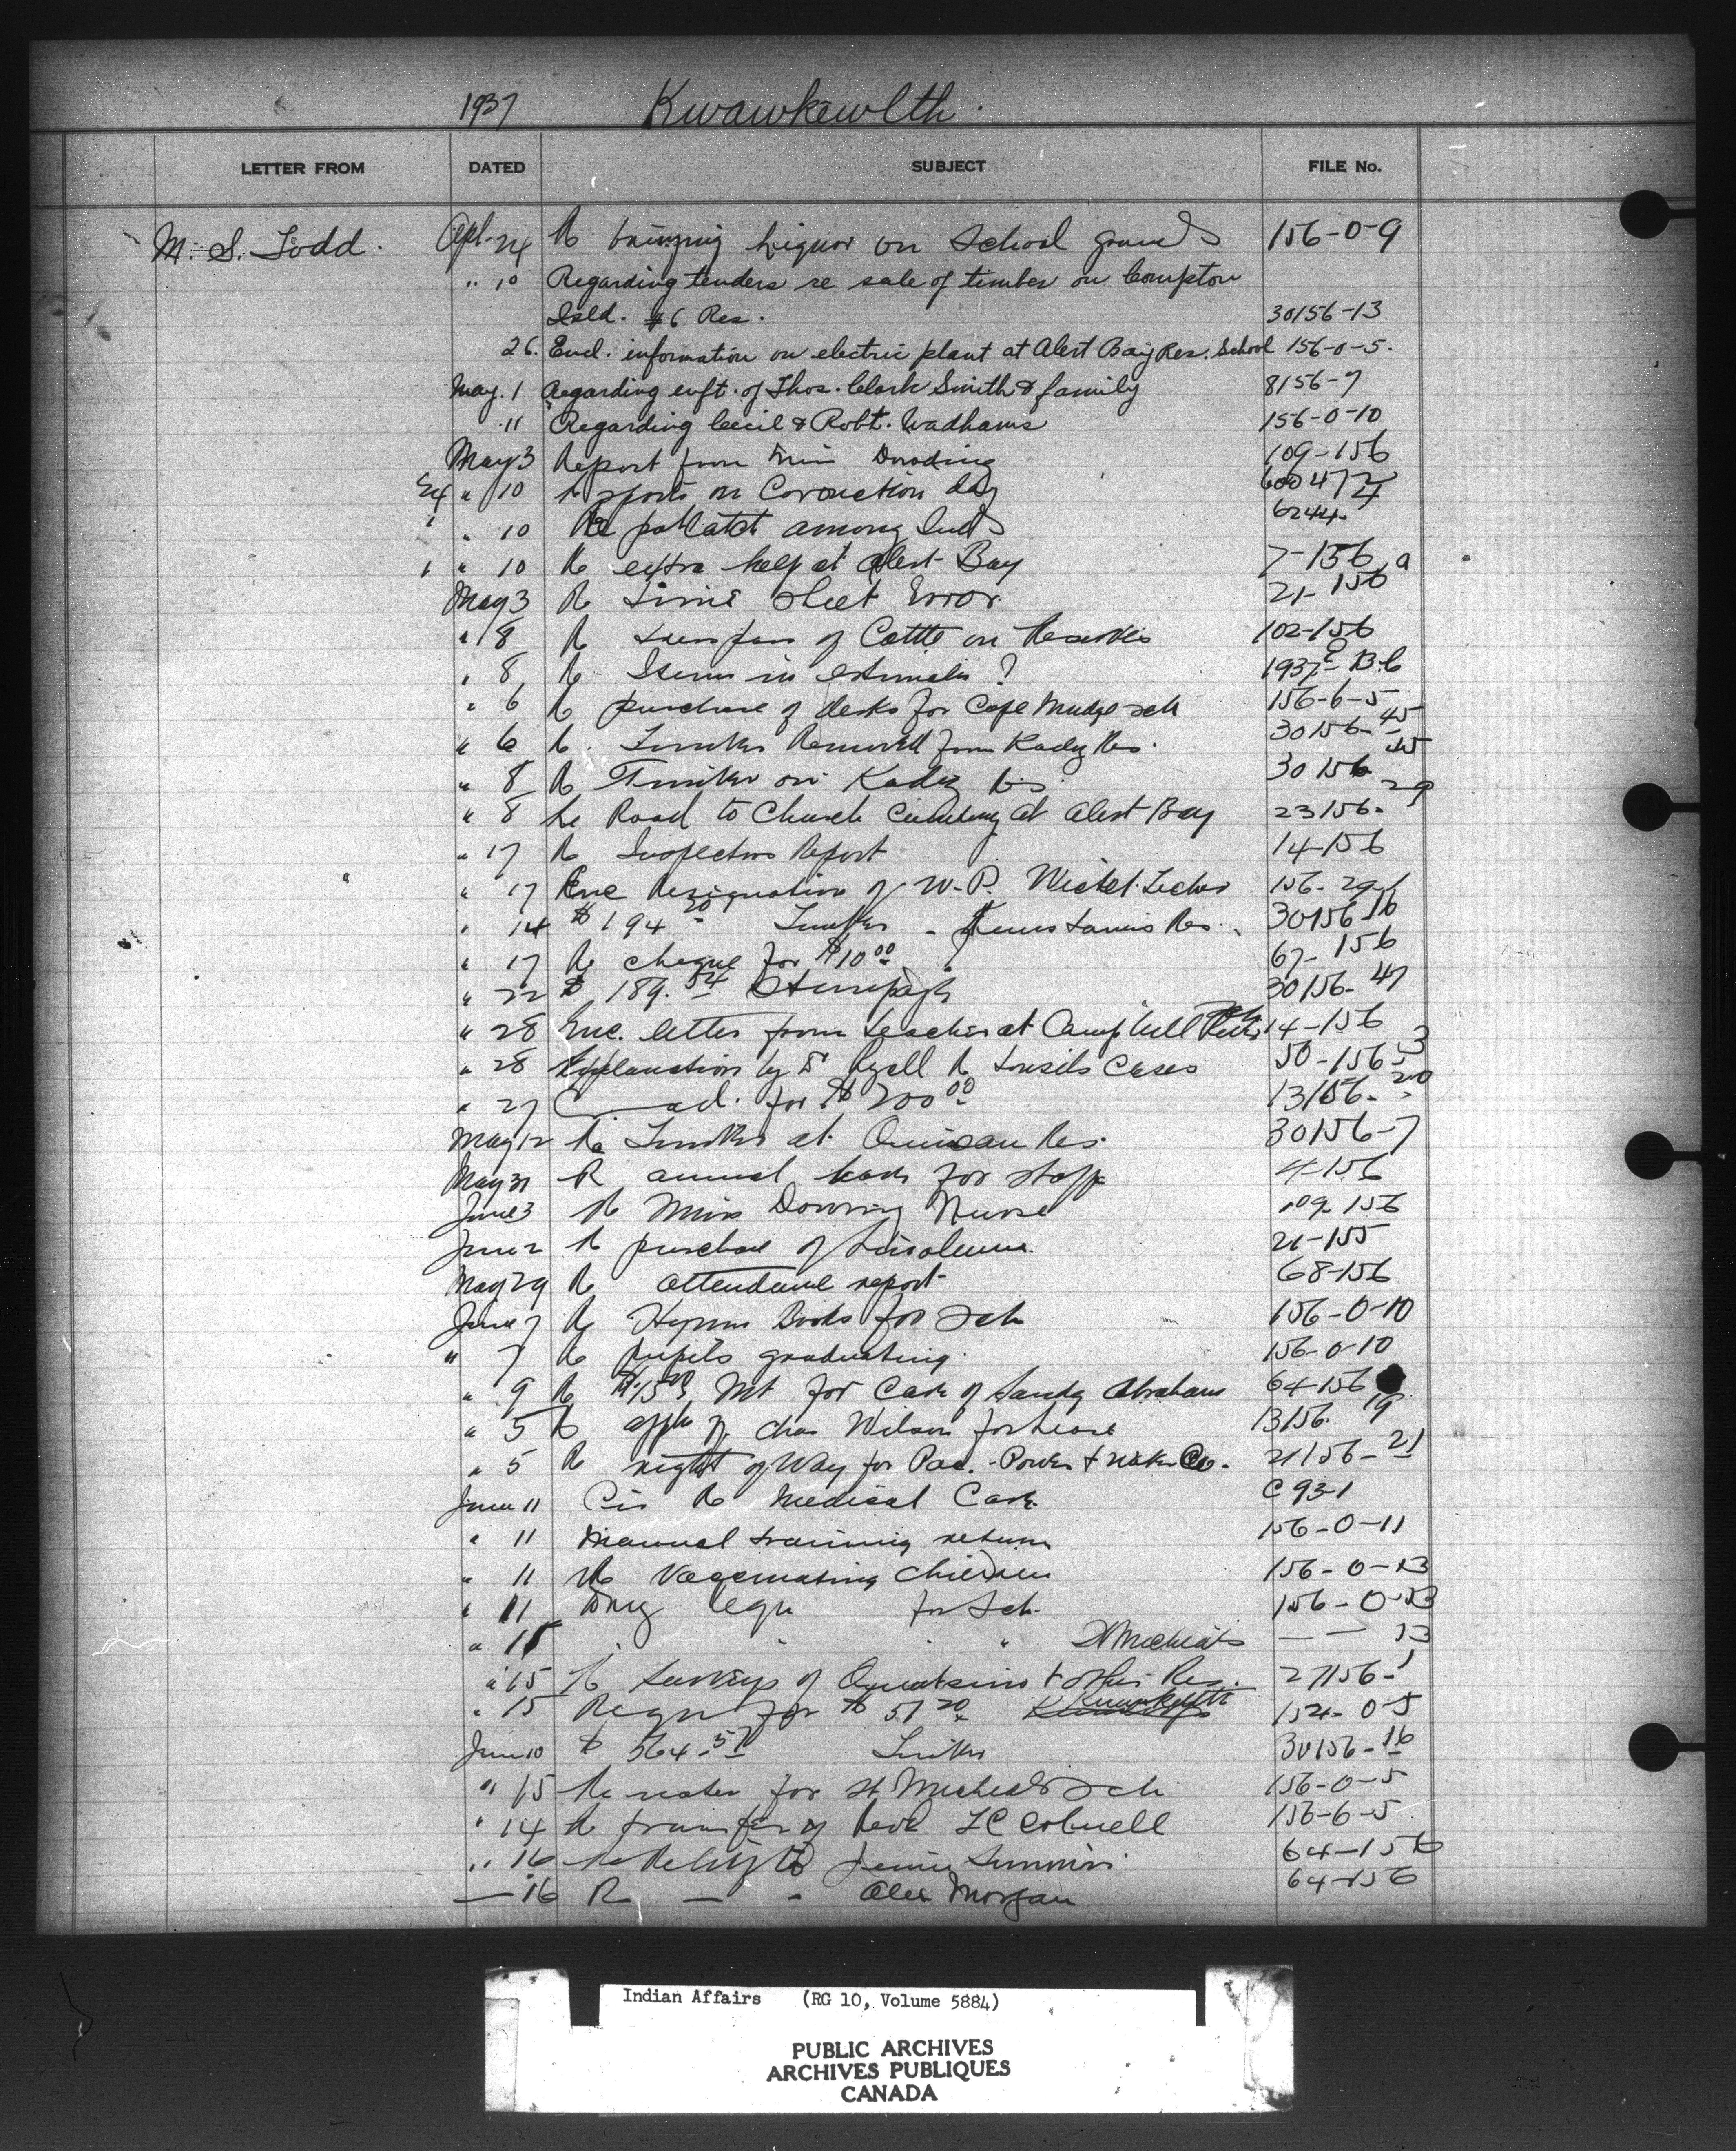 1937 Kwawkewlth.
LETTER FROM DATED SUBJECT FILE No.
M. S. Todd. Apl. 24 Re bringing liquor on School grounds 156-0-9
" 10 Regarding tenders re sale of timber on Compton
Isld. #6 Res. 30156-13
26. Encl. information on electric plant at Alert Bay Res. School 156-0-5.
May. 1 Regarding enft. of Thos. Clark Smith & family 8156-7
" 11 Regarding Cecil & Robt. Wadhams 156-0-10
May 3 Report from Miss 109-156
" 10 Re sports on Coronation day
" 10 Re potlatch among Inds 6244.
" 10 Re extra help at Alert Bay 7-156
May 3 Re Time sheet Error 21-156
" 8 Re of Cattle on Reserves 102-156
" 8 Re Items in estimates ?
" 6 Re purchase of desks for Cape Mudge sch 156-6-5
" 6 Re. Timber Removed from Res. 30156-45
" 8 Re Timber on Res 30156 45
" 8 Re Road to Church Cemetery at Alert Bay 23156-29
" 17 Re Inspectors Report 14-156
" 17 Enc Resignation of W. P.
" 14 $194.20 Timber - Res. 30156-16
" 17 Re cheque for $10.00 67-156
" 22 $189.54 Stumpage 30156-47
" 28 Enc. letter from teacher at Campbell 14-156
" 28 Explanation by Dr Ryall Re tonsils Cases 50-156-3
" 27 ad. for $200.00 13156-20
May 12 Re Timber at Quinsam Res. 30156-7
May 31 R annual leave for staff 4-156
June 3 Re Miss Downing Nurse 109-156
June 2 Re purchase of Linoleum. 21-155
May 29 Re attendance report 68-156
June 7 Re Hymn Books for Sch 156-0-10
" 7 Re pupils graduating. 156-0-10
" 9 Re Mt for Care of Sandy Abraham 64-156
" 5 Re appln of Chas Wilson for lease 13156-19
" 5 Re right of Way for Pac. Power & Water Co. 21156-21
June 11 Cir Re Medical Care C 93-1
" 11 Manual training return 156-0-11
" 11 Re Vaccinating Children 156-0-13
" 11 Drug Requ for Sch. 156-0-13
" 11 " " " " St Micheals — — 13
" 15 Re Surveys of Quatsino & other Res. 27156-1
" 15 Requ for $51.20 154-0-5
June 10 $564.57 Timber 30156-16
" 15 Re water for St Micheals Sch 156-0-5
" 14 Re transfer of 156-6-5
" 16 Re Relief to 64-156
— 16 R — " Alex Morgan 64-156
Indian Affairs (RG 10, Volume 5884)
PUBLIC ARCHIVES
ARCHIVES PUBLIQUES
CANADA